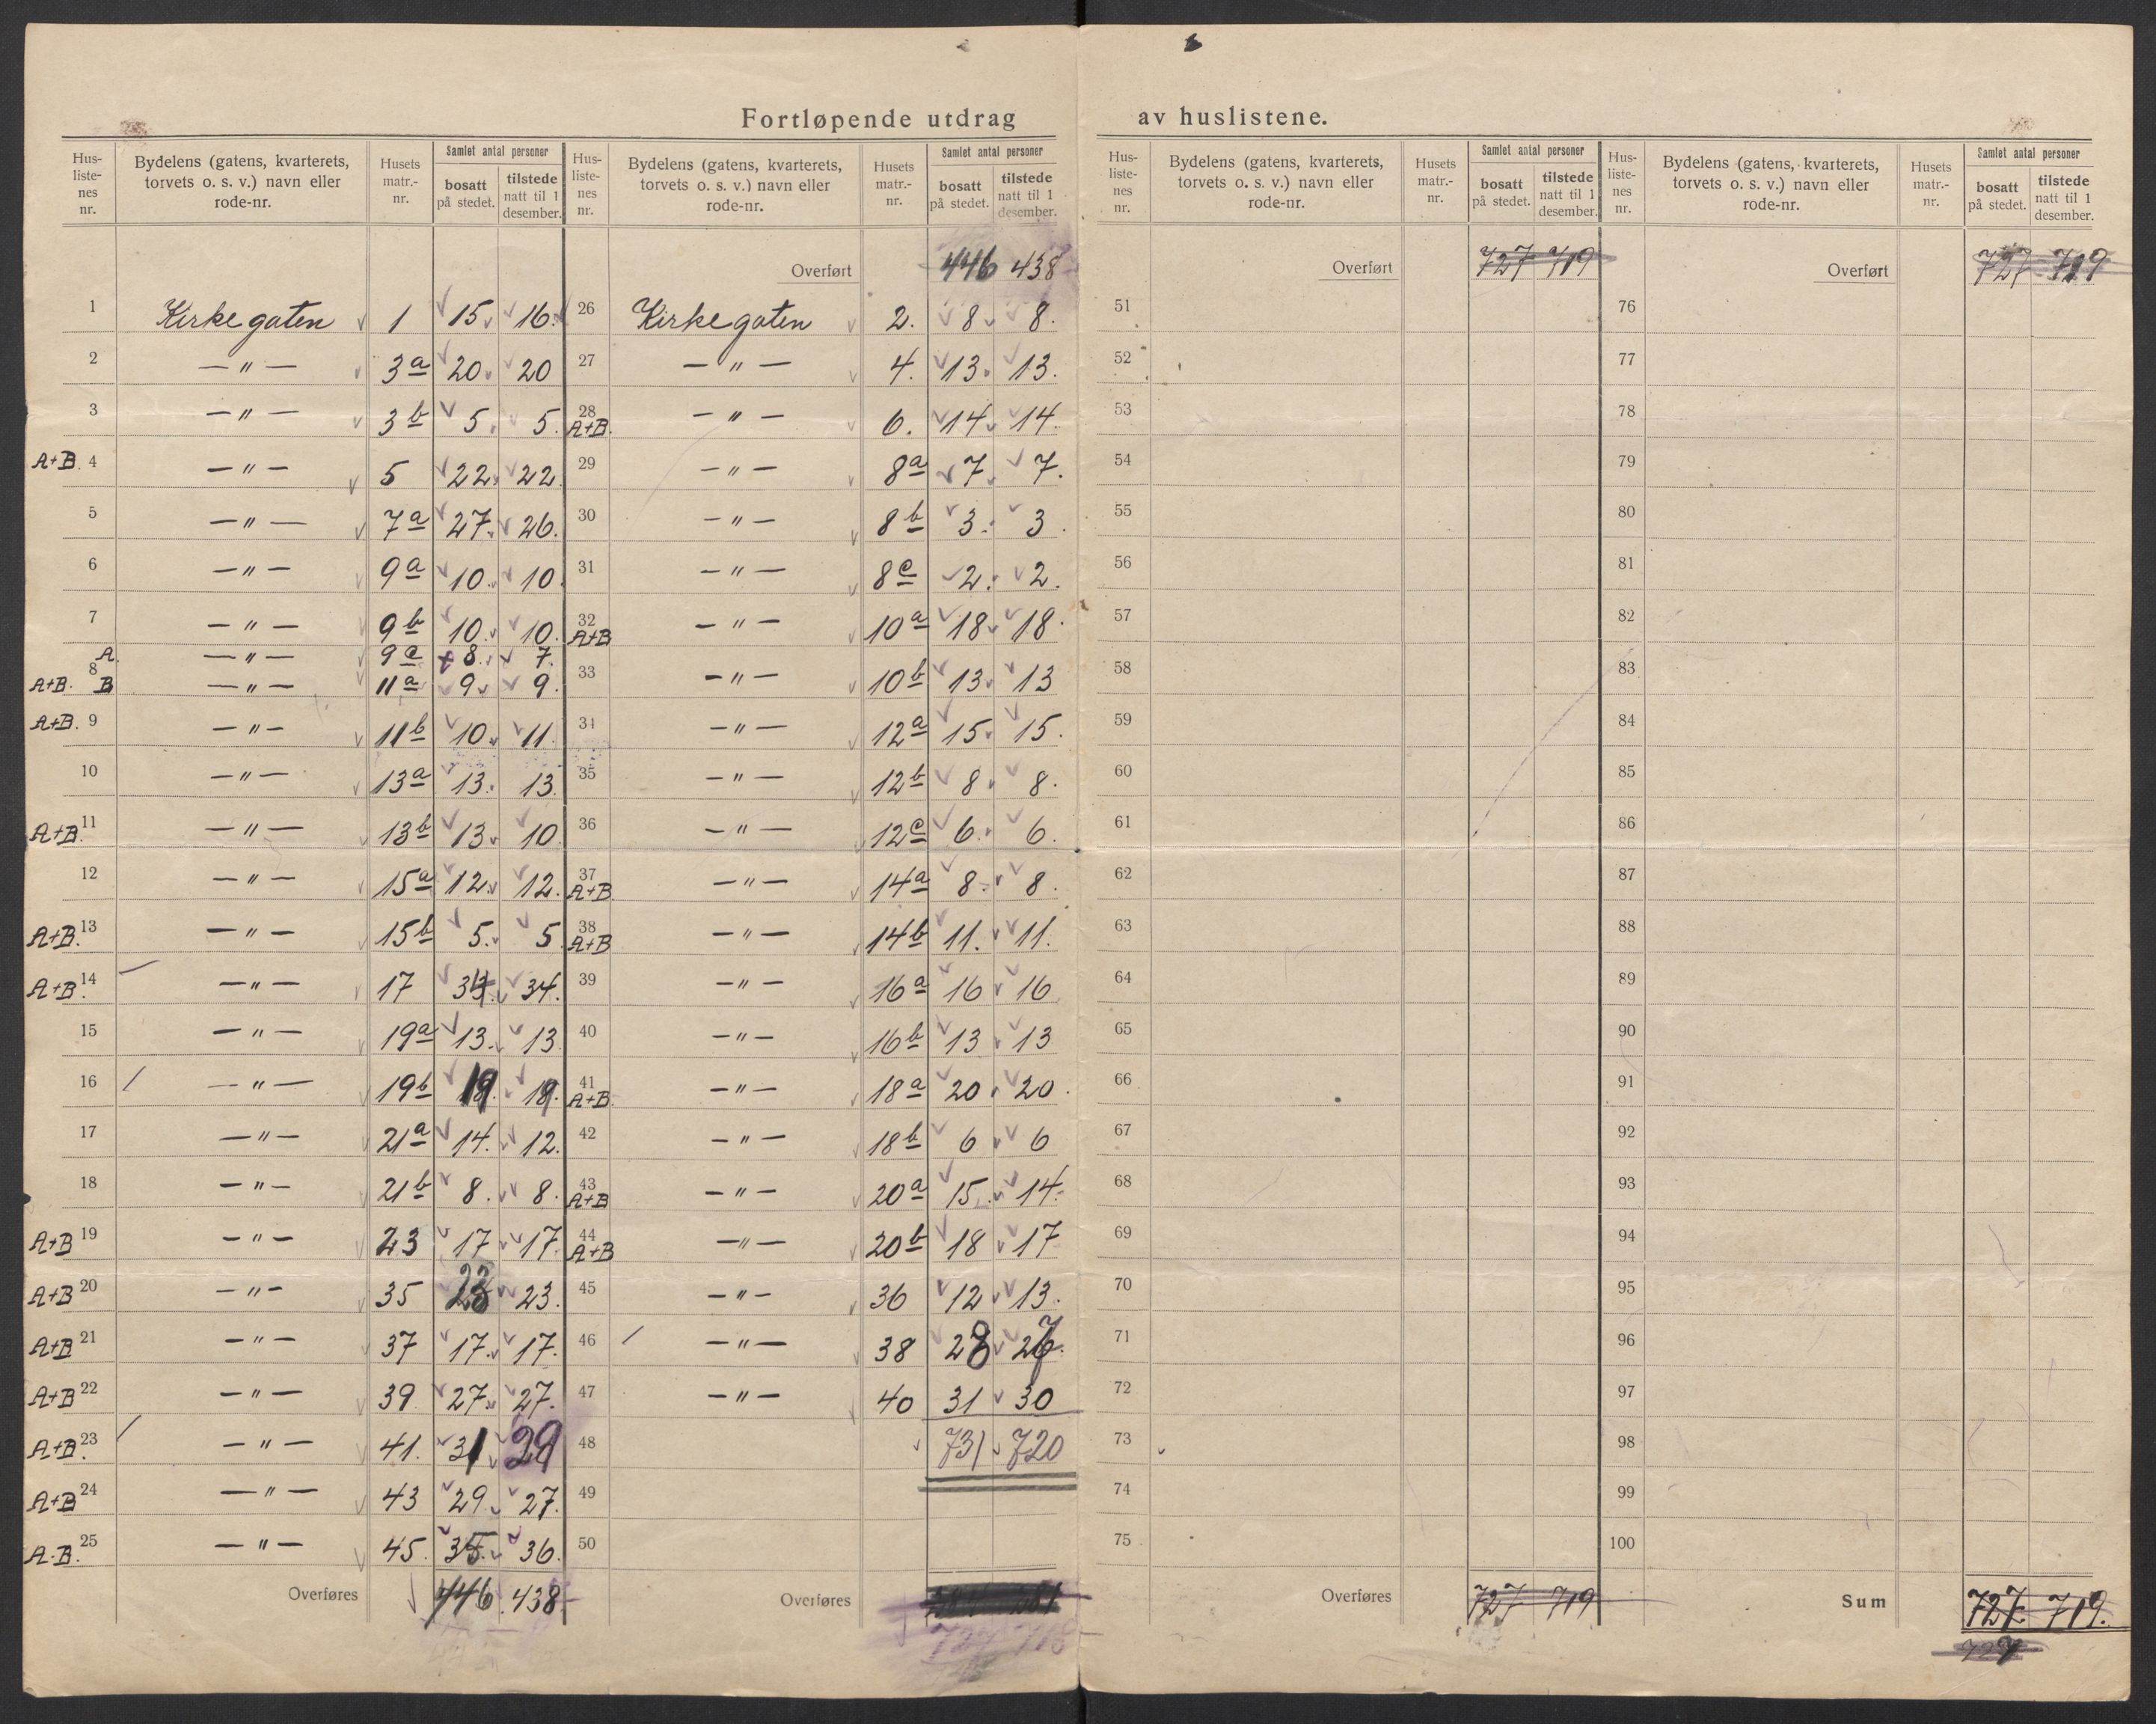 Fortløpende utdrag av huslistene.
Hus-listenes nr. Bydelens (gatens, kvarterets, torvets o. s. v.) navn eller rode-nr. Husets matr.-nr. Samlet antal personer bosatt på stedet. tilstede natt til 1 desember.
1 Kirkegaten 1 15 16
2 — " — 3a 20 20
3 — " — 3b 5 5
A+B. 4 — " — 5 22 22
5 — " — 7a 27 26
6 — " — 9a 10 10
7 — " — 9b 10 10
8 A. — " — 9c 8 7
A+B. B — " — 11a 9 9
A+B. 9 — " — 11b 10 11
10 — " — 13a 13 13
A+B. 11 — " — 13b 13 10
12 — " — 15a 12 12
A+B. 13 — " — 15b 5 5
A+B. 14 — " — 17 34 34
15 — " — 19a 13 13
16 — " — 19b 19 19
17 — " — 21a 14 12
18 — " — 21b 8 8
A+B 19 — " — 23 17 17
A+B 20 — " — 35 23 23
A+B 21 — " — 37 17 17
A+B 22 — " — 39 27 27
A+B. 23 — " — 41 31 29
A+B 24 — " — 43 29 27
A.B. 25 — " — 45 35 36
Overføres 446 438
Hus-listenes nr. Bydelens (gatens, kvarterets, torvets o. s. v.) navn eller rode-nr. Husets matr.-nr. Samlet antal personer bosatt på stedet. tilstede natt til 1 desember.
Overført 446 438
26 Kirkegaten 2. 8 8.
27 — " — 4. 13. 13.
28 A+B. — " — 6. 14 14.
29 — " — 8a 7 7.
30 — " — 8b 3 3
31 — " — 8c 2 2.
32 A+B — " — 10a 18 18
33 — " — 10b 13 13
34 — " — 12a 15 15.
35 — " — 12b 8 8.
36 — " — 12c 6 6.
37 A+B — " — 14a 8 8.
38 A+B — " — 14b 11. 11.
39 — " — 16a 16 16
40 — " — 16b 13 13
41 A+B. — " — 18a 20 20
42 — " — 18b 6 6
43 A+B — " — 20a 15 14
44 A+B — " — 20b 18 17
45 — " — 36 12 13.
46 — " — 38 28 27
47 — " — 40 31 30
48 731 720
49
50
Overføres
Hus-listenes nr. Bydelens (gatens, kvarterets, torvets o. s. v.) navn eller rode-nr. Husets matr.-nr. Samlet antal personer bosatt på stedet. tilstede natt til 1 desember.
Overført 727 719
51
52
53
54
55
56
57
58
59
60
61
62
63
64
65
66
67
68
69
70
71
72
73
74
75
Overføres 727 719
Hus-listenes nr. Bydelens (gatens, kvarterets, torvets o. s. v.) navn eller rode-nr. Husets matr.-nr. Samlet antal personer bosatt på stedet. tilstede natt til 1 desember.
Overført 727 719
76
77
78
79
80
81
82
83
84
85
86
87
88
89
90
91
92
93
94
95
96
97
98
99
100
Sum 727 719.
727